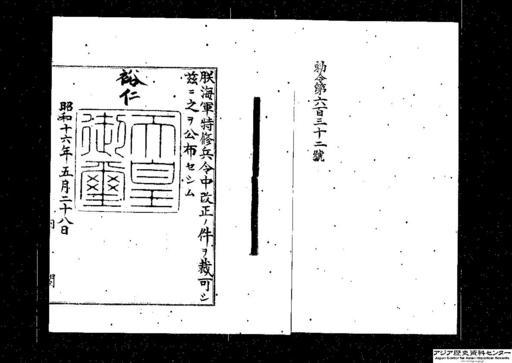 勅令第六百三十二號
朕海軍特修兵令中改正ノ件ヲ裁可シ
玆ニ之ヲ公布セシム
裕仁
天皇御璽
昭和十六年五月二十八日
内閣
アジア歴史資料センター
Japan Center for Asian Historical Records